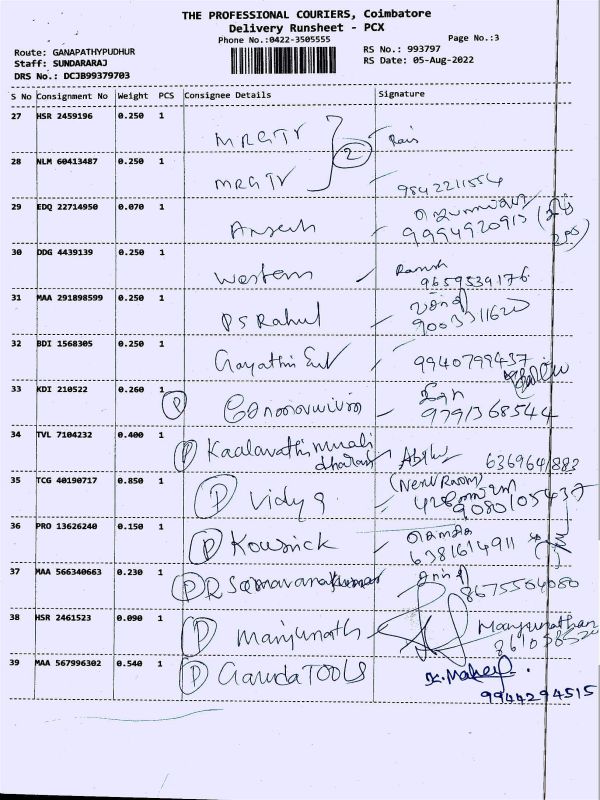 THE PROFESSIONAL COURIERS, Coimbatore
Delivery Runsheet - PCX
Phone No.:0422-3505555
Page No.:3
Route: GANAPATHYPUDHUR
RS No.: 993797
Staff: SUNDARARAJ
RS Date: 05-Aug-2022
DRS No.: DCJB99379703
S No Consignment No Weight PCS Consignee Details Signature
27 HSR 2459196 0.250 1
MRGTV 2
28 NLM 60413487 0.250 1
MRGTV 9842211554
29 EDQ 22714950 0.070 1
9994920913
30 DDG 4439139 0.250 1
Western Ramesh
9659539176
31 MAA 291898599 0.250 1
PS Rahul
9003311620
32 BDI 1568305 0.250 1
Gayathri 9940799437
33 KDI 210522 0.260 1
P 9791368544
34 TVL 7104232 0.400 1
P Kaalavathi Murali
dharan 6369641883
35 TCG 40190717 0.850 1
(Next Room)
P Vidya 9080105437
36 PRO 13626240 0.150 1
P Kowsick 6381614911
37 MAA 566340663 0.230 1
P R Saravanakumar 8675504080
38 HSR 2461523 0.090 1
P Manjunath Manjunathan
39 MAA 567996302 0.540 1
P Garuda TOOLS K. Mahesh
9944294515